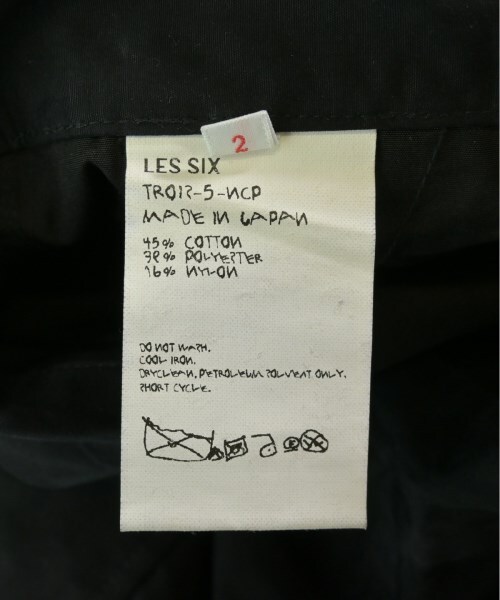 2
LES SIX
MADE IN JAPAN
45% COTTON
39% POLYESTER
16% NYLON
DO NOT WASH.
COOL IRON.
DRYCLEAN, PETROLEUM SOLVENT ONLY.
SHORT CYCLE.